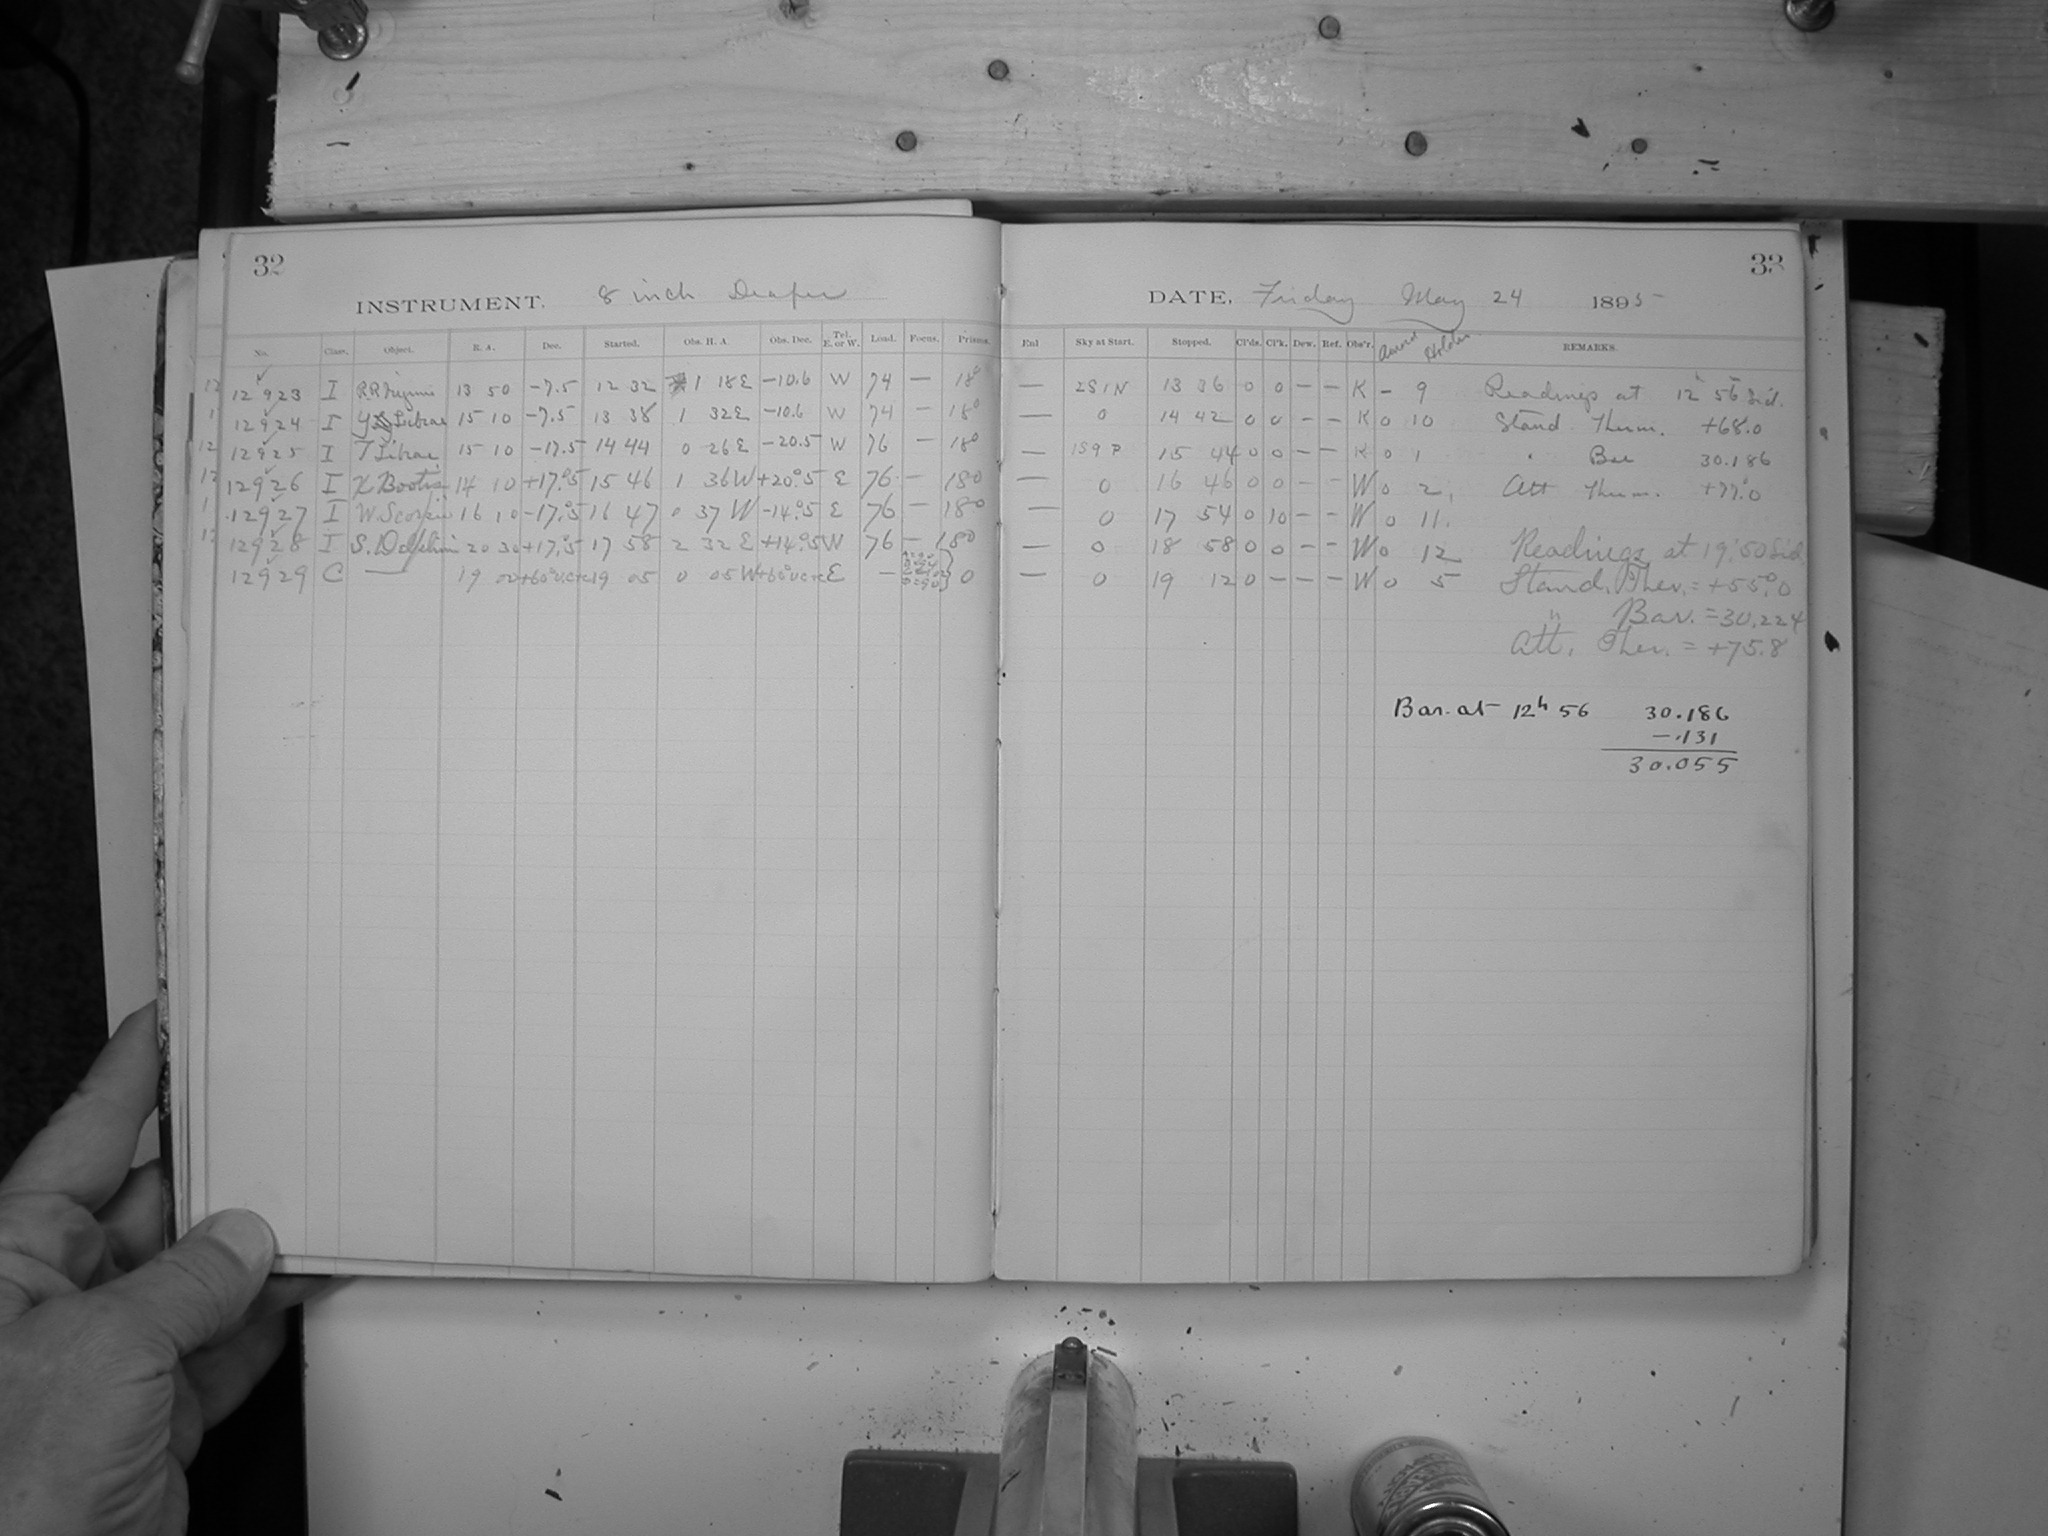 32
INSTRUMENT. 8 inch Draper
No. Class. Object. R. A. Dec. Started. Obs. H. A. Obs. Dec. Tel. E. or W. Load. Focus. Prisms.
12923 I R.R Virginis 13 50 -7.5 12 32 1 18E -10.6 W 74 — 180
12924 I Y Librae 15 10 -7.5 13 38 1 32E -10.6 W 74 — 180
12925 I T Librae 15 10 -17.5 14 44 0 26E -20.5 W 76 — 180
12926 I X Bootis 14 10 +17°.5 15 46 1 36W +20°.5 E 76 — 180
12927 I W Scorpii 16 10 -17°.5 16 47 0 37 W -14°.5 E 76 — 180
12928 I S. Delphini 20 30 +17°.5 17 58 2 32 E +14°.5 W 76 — 180
12929 C — 19 00 +60° 19 05 0 05W +60° E — 0
33
DATE, Friday May 24 1895
Enl Sky at Start. Stopped. Cl'ds. Cl'k. Dew. Ref. Obs'r. Holder REMARKS.
— 2S1N 13 36 0 0 — — K — 9 Readings at 12h 56m Sid.
— 0 14 42 0 0 — — K 0 10 Stand. Therm. +68.0
— 1S9P 15 44 0 0 — — K 0 1 " Bar 30.186
— 0 16 46 0 0 — — W 0 2, Att Therm. +77.0
— 0 17 54 0 10 — — W 0 11.
— 0 18 58 0 0 — — W 0 12 Readings at 19h 50 Sid.
— 0 19 12 0 — — — W 0 5 Stand. Ther. = +55.°0
" Bar. = 30.224
Att. Ther. = +75.8
Bar. at 12h 56 30.186
-.131
30.055